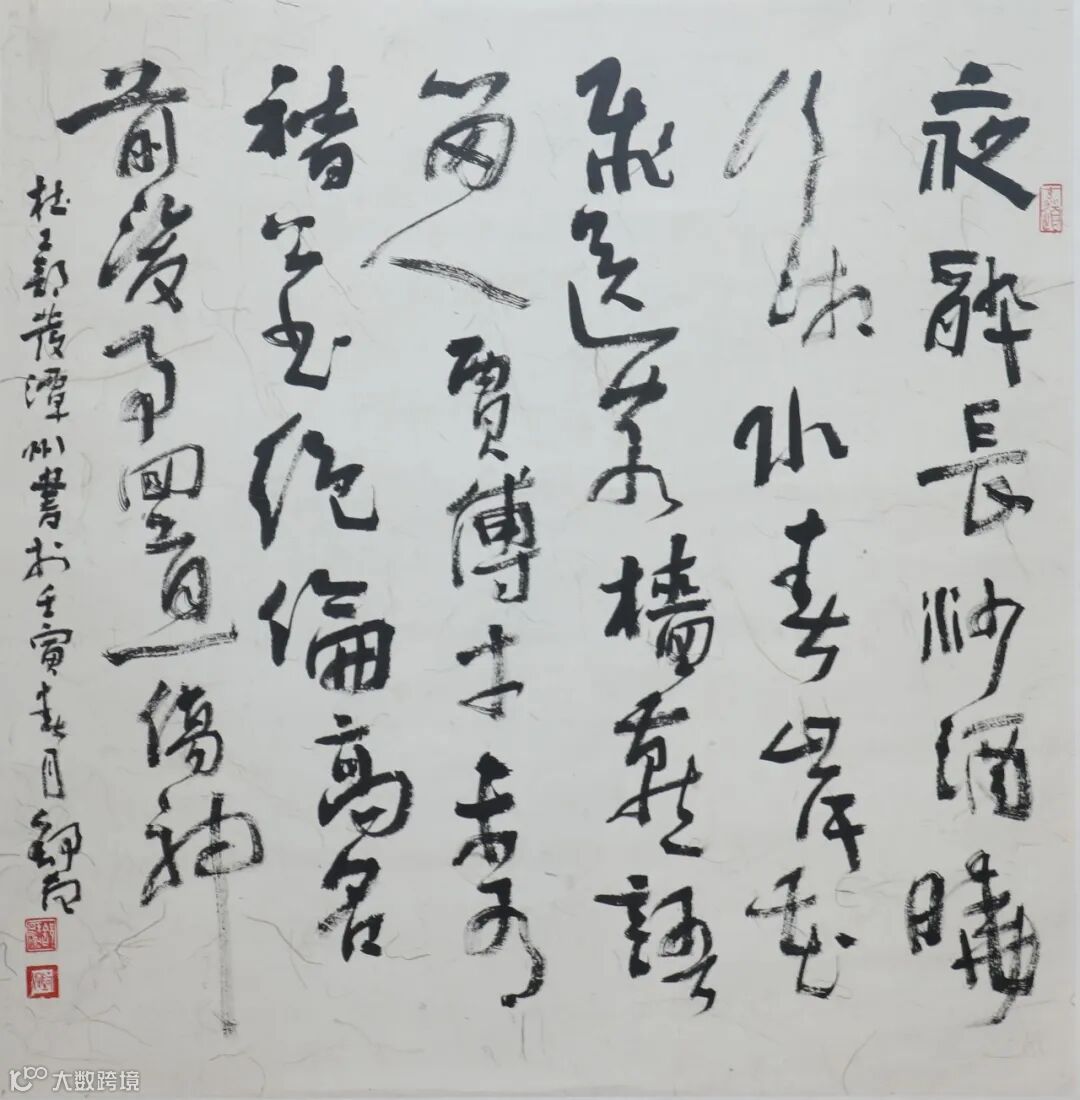 夜醉長沙酒曉
行湘水春岸花
飛送客檣燕語
留人賈傅才未有
褚公書絕倫高名
前後事回首一傷神
杜工部發潭州書於壬寅春月
大数跨境